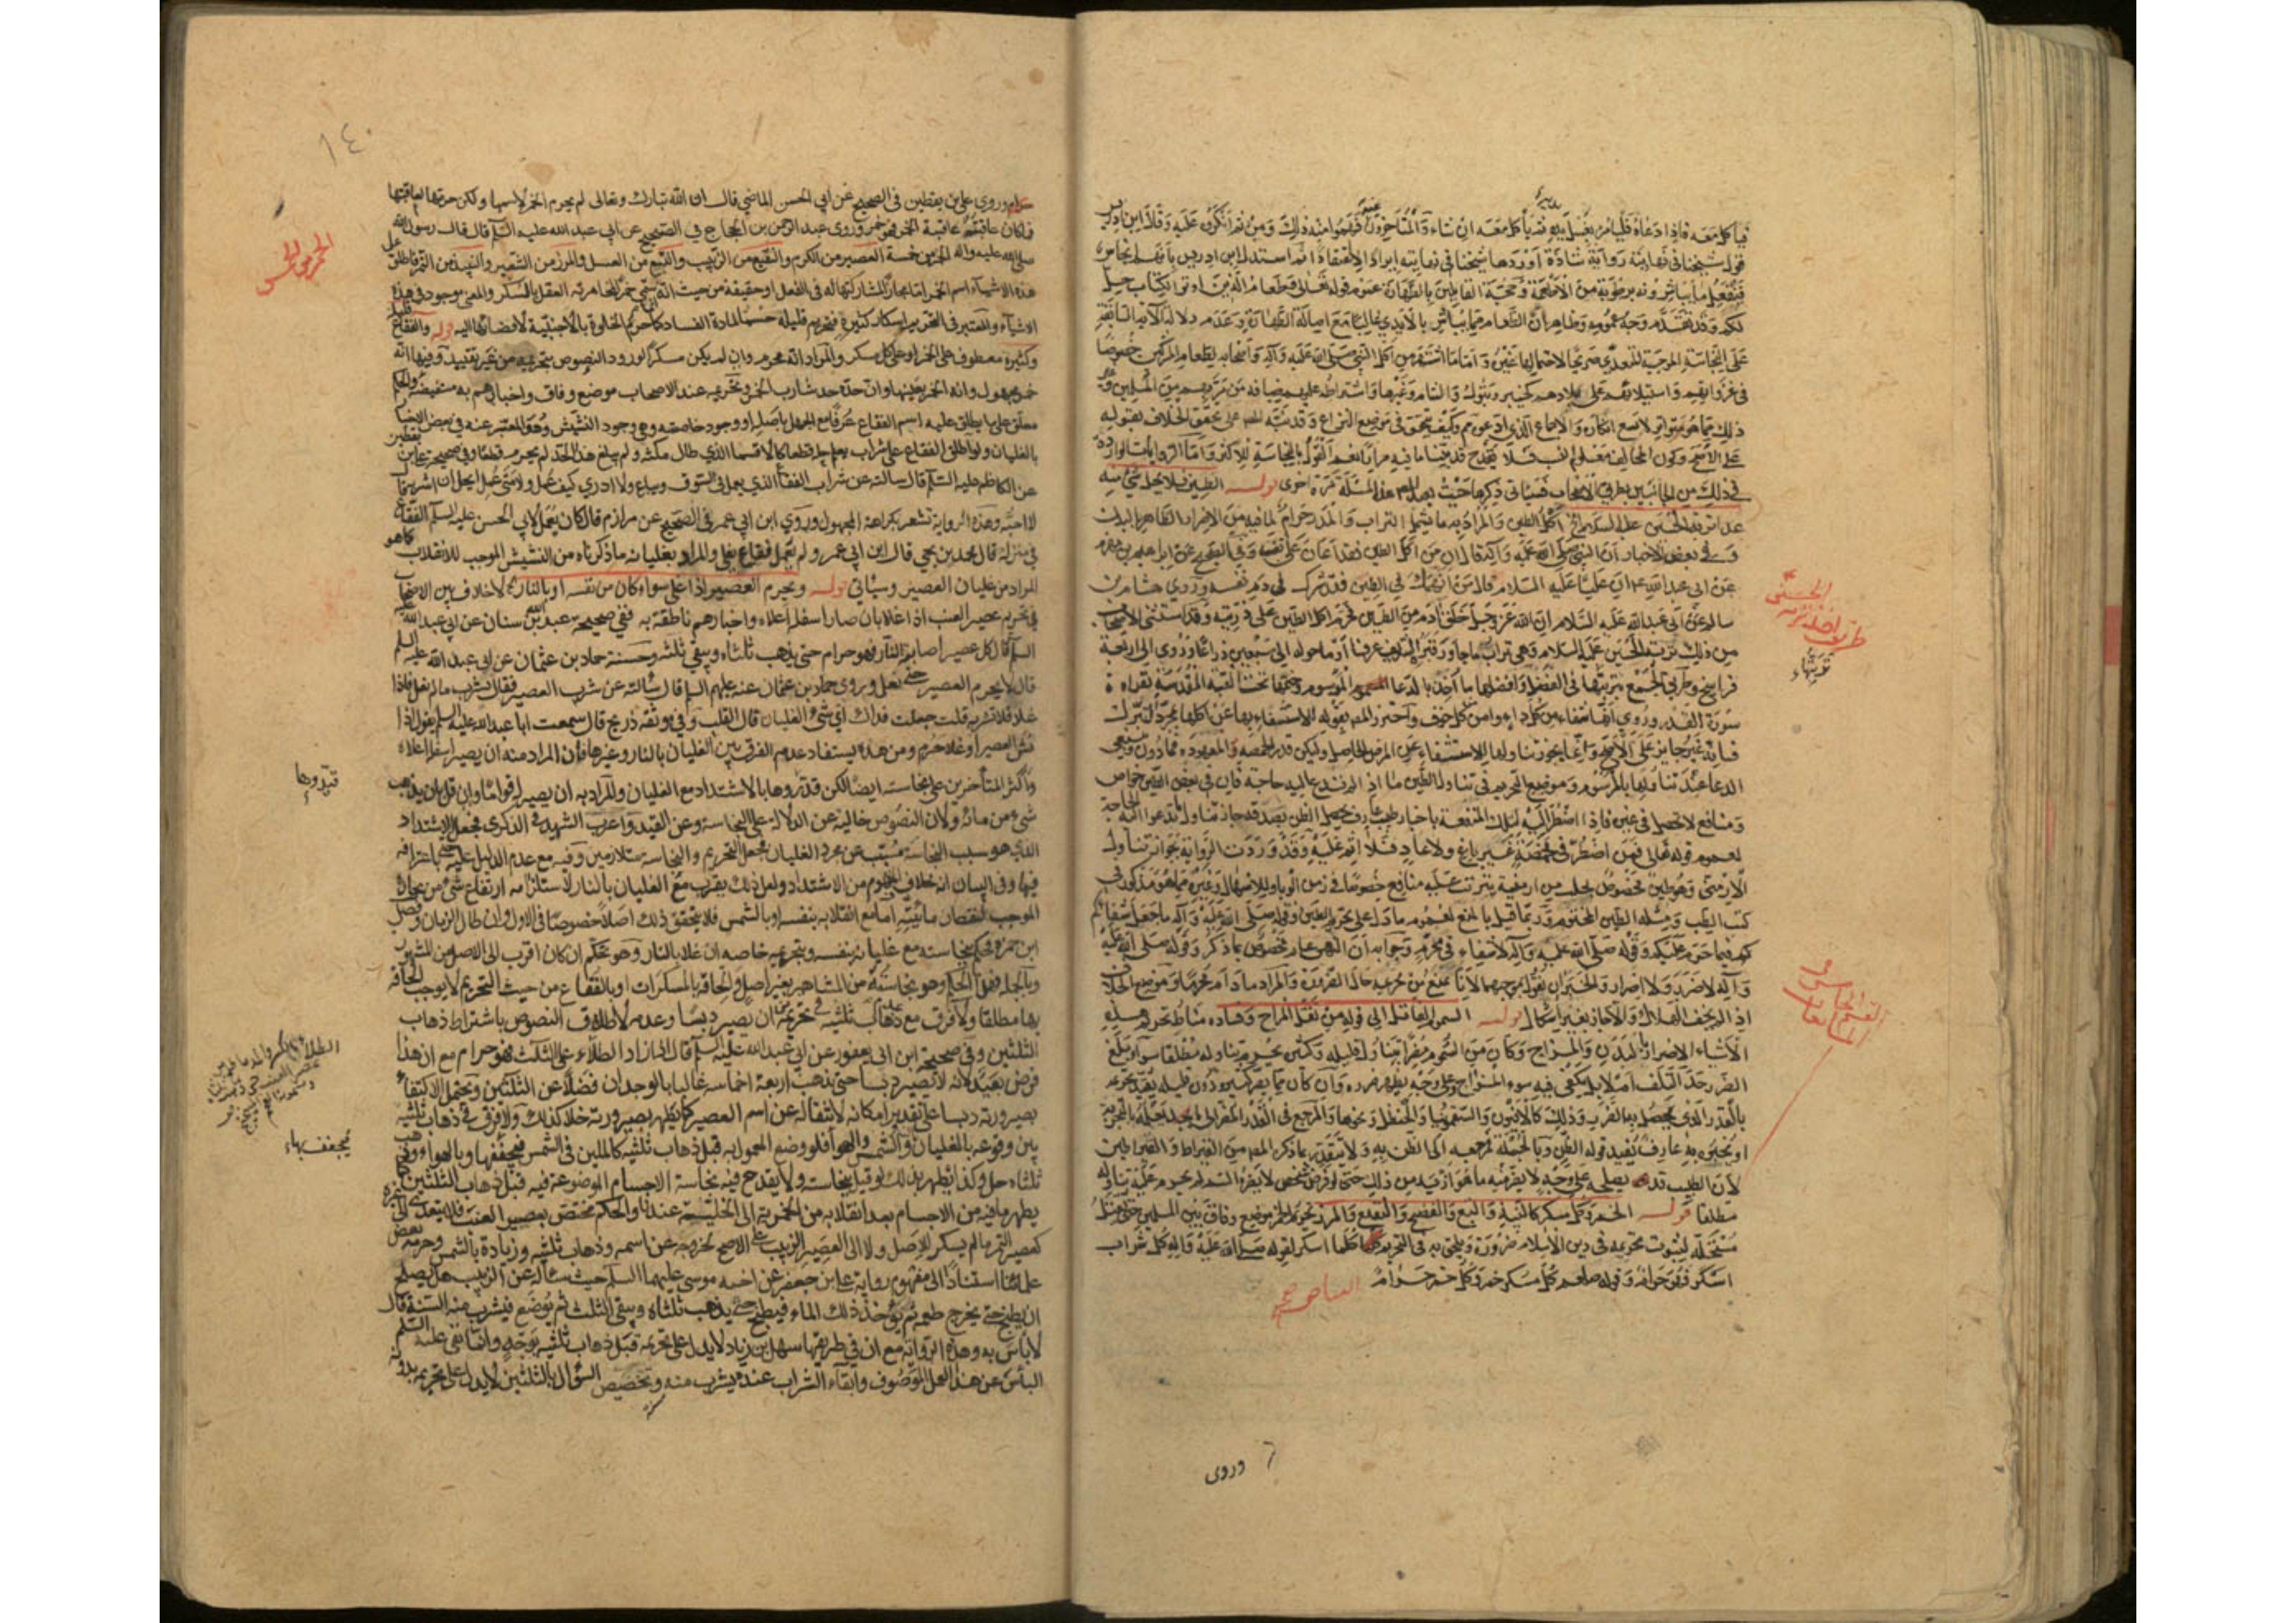 فيأكل معه فإذا دعاه فليأمره بغسل يديه ثم يأكل معه ان شاء والمتأخرون فهموا منه ذلك ومن ثم انكروا عليه وقلا ابن ادريس
قول شيخنا في نهايته رواية شاذة اوردها شيخنا في نهايته ايرادا لا اعتقادا ثم استدل ابن ادريس بانهم انجاس
فينفعل ما يباشرونه برطوبة من الاطعمة وحجة القائلين بالطهارة عموم قوله تعالى وطعام الذين اوتوا الكتاب حل
لكم وقد تقدم وجه عمومه وظاهر ان الطعام مما يباشر بالايدي غالبا مع اصالة الطهارة وعدم دلالة الآية السابقة
على النجاسة الموجبة للتعدي صريحا لاحتمالها غيره واما ما اشتهر من اكل النبي صلى الله عليه وآله واصحابه لطعام المشركين خصوصا
في غزواتهم واستيلائهم على بلادهم كخيبر وتبوك والشام وغيرها واشتراطه عليهم ضيافة من مر بهم من المسلمين وغير
ذلك مما هو متواتر لا يسع انكاره والاجماع الذي ادعوه ثم وكيف يتحقق في موضع النزاع وقد نبه المص على تحقق الخلاف بقوله
على الاشهر وكون المخالف معلوم النسب فلا يقدح قد بينا ما فيه مرارا نعم القول بالنجاسة للاكثر واما الروايات الواردة
في ذلك من الجانبين بطرق الاصحاب فسيأتي ذكرها حيث يعيد المص هذه المسئلة مرة اخرى قوله الطين فلا يحل شيء منه
عدا تربة الحسين عليه السلام الخ اكل الطين والمراد به ما يشمل التراب والمدر حرام لما فيه من الاضرار الظاهر بالبدن
وفي بعض الاخبار ان النبي صلى الله عليه وآله قال ان من اكل الطين فقد اعان على نفسه وفي الصحيح عن ابراهيم بن مهزم
عن ابي عبد الله ع ان عليا عليه السلام قال من انهمك في الطين فقد شرك في دم نفسه وروى هشام بن
سالم عن ابي عبد الله عليه السلام ان الله عز وجل خلق آدم من الطين فحرم اكل الطين على ذريته وقد استثنى الاصحاب
من ذلك تربة الحسين عليه السلام وهي تراب ما جاور قبره الشريف عرفا او ما حوله الى سبعين ذراعا وروى الى اربعة
فراسخ وطريق الجمع ترتبها في الفضل وافضلها ما اخذ بالدعاء المرسوم وختمها تحت القبة المقدسة بقراءة
سورة القدر وروى انها شفاء من كل داء وامن من كل خوف واحترز المص بقوله للاستشفاء بها عن اكلها بمجرد التبرك
فانه غير جايز على الاصح وانما يجوز تناولها للاستشفاء من المرض الحاصل وليكن قدر الحمصة المعهودة فما دون وينبغي
الدعاء عند تناولها بالمرسوم وموضع التحريم في تناول الطين ما اذا لم تدع اليه حاجة فان في بعض الطين خواص
ومنافع لا تحصل في غيره فاذا اضطر اليه لتلك المنفعة باخبار طبيب عارف يحصل الظن بصدقه جاز تناول ما تدعو اليه الحاجة
لعموم قوله تعالى فمن اضطر في مخمصة غير باغ ولا عاد فلا اثم عليه وقد وردت الرواية بجواز تناول
الارمني وهو طين مخصوص يجلب من ارمنية يترتب عليه منافع خصوصا في زمن الوباء وللاسهال وغيره مما هو مذكور في
كتب الطب ومثله الطين المختوم وربما قيل بالمنع لعموم ما دل على تحريم الطين وقوله صلى الله عليه وآله ما جعل شفائكم
فيما حرم عليكم وقوله صلى الله عليه وآله لا شفاء في محرم وجوابه ان النهي عام مخصوص بما ذكر وقوله صلى الله عليه
وآله لا ضرر ولا اضرار والخبران نقول بموجبهما لانا نمنع من تحريمه حال الضرورة والمراد ما دام محرما وموضع الخلاف
اذا لم يخف الهلاك والا جاز بغير اشكال قوله السموم القاتل الى قوله من ثقل المزاج وفساده مناط تحريم هذه
الاشياء الاضرار بالبدن والمزاج وكان من السموم مضرا تناول قليله وكثيره يحرم تناوله مطلقا سواء بلغ
الضرر حد التلف ام لا بل يكفي فيه سوء المزاج على وجه يظهر ضرره وان كان مما يضر كثيره دون قليله يقيد تحريمه
بالقدر الذي يحصل به الضرر وذلك كالافيون والسقمونيا والحنظل ونحوها والمرجع في القدر المضر الى ما يعلم بالتجربة
او يخبر به عارف يفيد قوله الظن وبالجملة مرجعه الى الظن به ولا يتقدر بما ذكره المص من القيراط والقيراطين
لان الطبيب قد يصلحه على وجه لا يضر منه ما هو ازيد من ذلك حتى لو فرض شخص لا يضره السم لم يحرم عليه تناوله
مطلقا قوله الخمر وكل مسكر كالنبيذ والبتع والفضيخ والنقيع والمزر تحريم الخمر موضع وفاق بين المسلمين حتى يقتل
مستحله لثبوت تحريمه في دين الاسلام ضرورة ويلحق به في التحريم كلما اسكر لقوله صلى الله عليه وآله كل شراب
اسكر فهو حرام وقوله صلعم كل مسكر خمر وكل خمر حرام
وروى
١٤٠
حرام وروى علي بن يقطين في الصحيح عن ابي الحسن الماضي قال ان الله تبارك وتعالى لم يحرم الخمر لاسمها ولكن حرمها لعاقبتها
فما كان عاقبته عاقبة الخمر فهو خمر وروى عبد الرحمن بن الحجاج في الصحيح عن ابي عبد الله عليه السلم قال قال رسول الله
صلى الله عليه وآله الخمر من خمسة العصير من الكرم والنقيع من الزبيب والبتع من العسل والمزر من الشعير والنبيذ من التمر فاطلق على
هذه الاشياء اسم الخمر اما مجازا لمشاركتها له في الفعل او حقيقة من حيث انه سمي خمرا لمخامرته العقل بالسكر والمعنى موجود في هذه
الاشياء والمعتبر في التحريم اسكار كثيره فيحرم قليله حسما لمادة الفساد كما حرم الخلوة بالاجنبية لافضائها اليه قوله والفقاع قليله
وكثيره معطوف على الخمر او على كل مسكر والمراد انه محرم وان لم يكن مسكرا لورود النصوص بتحريمه من غير تقييد وفيها انه
خمر مجهول وانه الخمر بعينها وان حده حد شارب الخمر وتحريمه عند الاصحاب موضع وفاق واخبارهم به مستفيضة والحكم
معلق على ما يطلق عليه اسم الفقاع عرفا مع الجهل باصله او وجود خاصته وهي وجود النشيش وهو المعبر عنه في بعض الاخبار
بالغليان ولو اطلق الفقاع على شراب يعلم حله قطعا كالاقسما الذي طال مكثه ولم يبلغ هذا الحد لم يحرم قطعا وفي صحيحة علي بن يقطين
عن الكاظم عليه السلم قال سالته عن شراب الفقاع الذي يعمل في السوق ويباع ولا ادري كيف عمل ولا متى عمل ايحل ان اشربه قال
لا احبه وهذه الرواية تشعر بكراهة المجهول وروى ابن ابي عمير في الصحيح عن مرازم قال كان يعمل لابي الحسن عليه السلم الفقاع
في منزله قال محمد بن يحيى قال ابن ابي عمير ولم يعمل فقاع يغلي والمراد بغليانه ما ذكرناه من النشيش الموجب للانقلاب كما هو
المراد من غليان العصير وسيأتي قوله ويحرم العصير اذا غلى سواء كان من نفسه او بالنار الخ لا خلاف بين الاصحاب
في تحريم عصير العنب اذا غلا بان صار اسفله اعلاه واخبارهم ناطقة به ففي صحيحة عبد الله بن سنان عن ابي عبد الله عليه
السلم قال كل عصير اصابته النار فهو حرام حتى يذهب ثلثاه ويبقى ثلثه وحسنة حماد بن عثمان عن ابي عبد الله عليه السلم
قال لا يحرم العصير حتى يغلي وروى حماد بن عثمان عنه عليهم السلم قال سألته عن شرب العصير فقال تشرب ما لم يغل فاذا
غلا فلا تشربه قلت جعلت فداك اي شئ الغليان قال القلب وفي موثقة ذريح قال سمعت ابا عبد الله عليه السلم يقول اذا
نش العصير او غلا حرم ومن هذه يستفاد عدم الفرق بين الغليان بالنار وغيرها فان المراد منه ان يصير اسفله اعلاه
واكثر المتأخرين على نجاسته ايضا لكن قيدوها بالاشتداد مع الغليان والمراد به ان يصير له قوام وان قل بان يذهب
شئ من مائه ولان النصوص خالية عن الدلالة على النجاسة وعن القيد واغرب الشهيد في الذكرى فجعل الاشتداد
الذي هو سبب النجاسة مسببا عن مجرد الغليان فجعل التحريم والنجاسة متلازمين وفيه مع عدم الدليل عليه حتى باعترافه
فيها وفي البيان انه خلاف المفهوم من الاشتداد ولعل ذلك يقرب مع الغليان بالنار لاستلزامه ارتفاع شئ من بخاره
الموجب لنقصان مائيته اما مع انقلابه بنفسه او بالشمس فلا يتحقق ذلك اصلا خصوصا في الاول وان طال الزمان وفصل
ابن حمزة فحكم بنجاسته مع غليانه بنفسه وبتحريمه خاصة ان غلا بالنار وهو تحكم ان كان اقرب الى الاصل من المشهور
وبالجملة فهذا الحكم وهو نجاسته من المشاهير بغير اصل والحاقه بالمسكرات او بالفقاع من حيث التحريم لا يوجب الحاقه
بها مطلقا ولا فرق مع عدم ذهاب ثلثيه في تحريمه بين ان يصير دبسا وعدمه لاطلاق النصوص باشتراط ذهاب
الثلثين وفي صحيحة ابن ابي يعفور عن ابي عبد الله عليه السلم قال اذا زاد الطلاء على الثلث فهو حرام مع ان هذا
فرض بعيد لانه لا يصير دبسا حتى يذهب اربعة اخماسه غالبا بالوجدان فضلا عن الثلثين ويحتمل الاكتفاء
بصيرورته دبسا على تقدير امكانه لانتقاله عن اسم العصير كما يطهر بصيرورته خلا كذلك ولا فرق في ذهاب ثلثيه
بين وقوعه بالغليان والشمس والهواء فلو وضع المعمول به قبل ذهاب ثلثيه كالملبن في الشمس فتجففها وبالهواء وذهب
ثلثاه حل وكذا يطهر بذلك لو قيل بنجاسته ولا يقدح فيه نجاسة الاجسام الموضوعة فيه قبل ذهاب الثلثين كما
يطهر ما فيه من الاجسام بعد انقلابه من الخمرية الى الخلية عندنا والحكم مختص بعصير العنب فلا يتعدى الى غيره
كعصير التمر ما لم يسكر للاصل ولا الى العصير الزبيب على الاصح لخروجه عن اسمه وذهاب ثلثيه وزيادة بالشمس وحرمه بعض
علمائنا استنادا الى مفهوم رواية علي بن جعفر عن اخيه موسى عليهما السلم حيث سأله عن الزبيب هل يصلح
ان يطبخ حتى يخرج طعمه ثم يؤخذ ذلك الماء فيطبخ حتى يذهب ثلثاه ويبقى الثلث ثم يوضع فيشرب منه السنة قال
لا بأس به وهذه الرواية مع ان في طريقها سهل بن زياد لا يدل على تحريمه قبل ذهاب ثلثيه بوجه وانما نفى عليه السلم
البأس عن هذا العمل الموصوف وابقاء الشراب عنده يشرب منه وتخصيص السؤال بالثلثين لا يدل على تحريمه بدونه
قيدوها